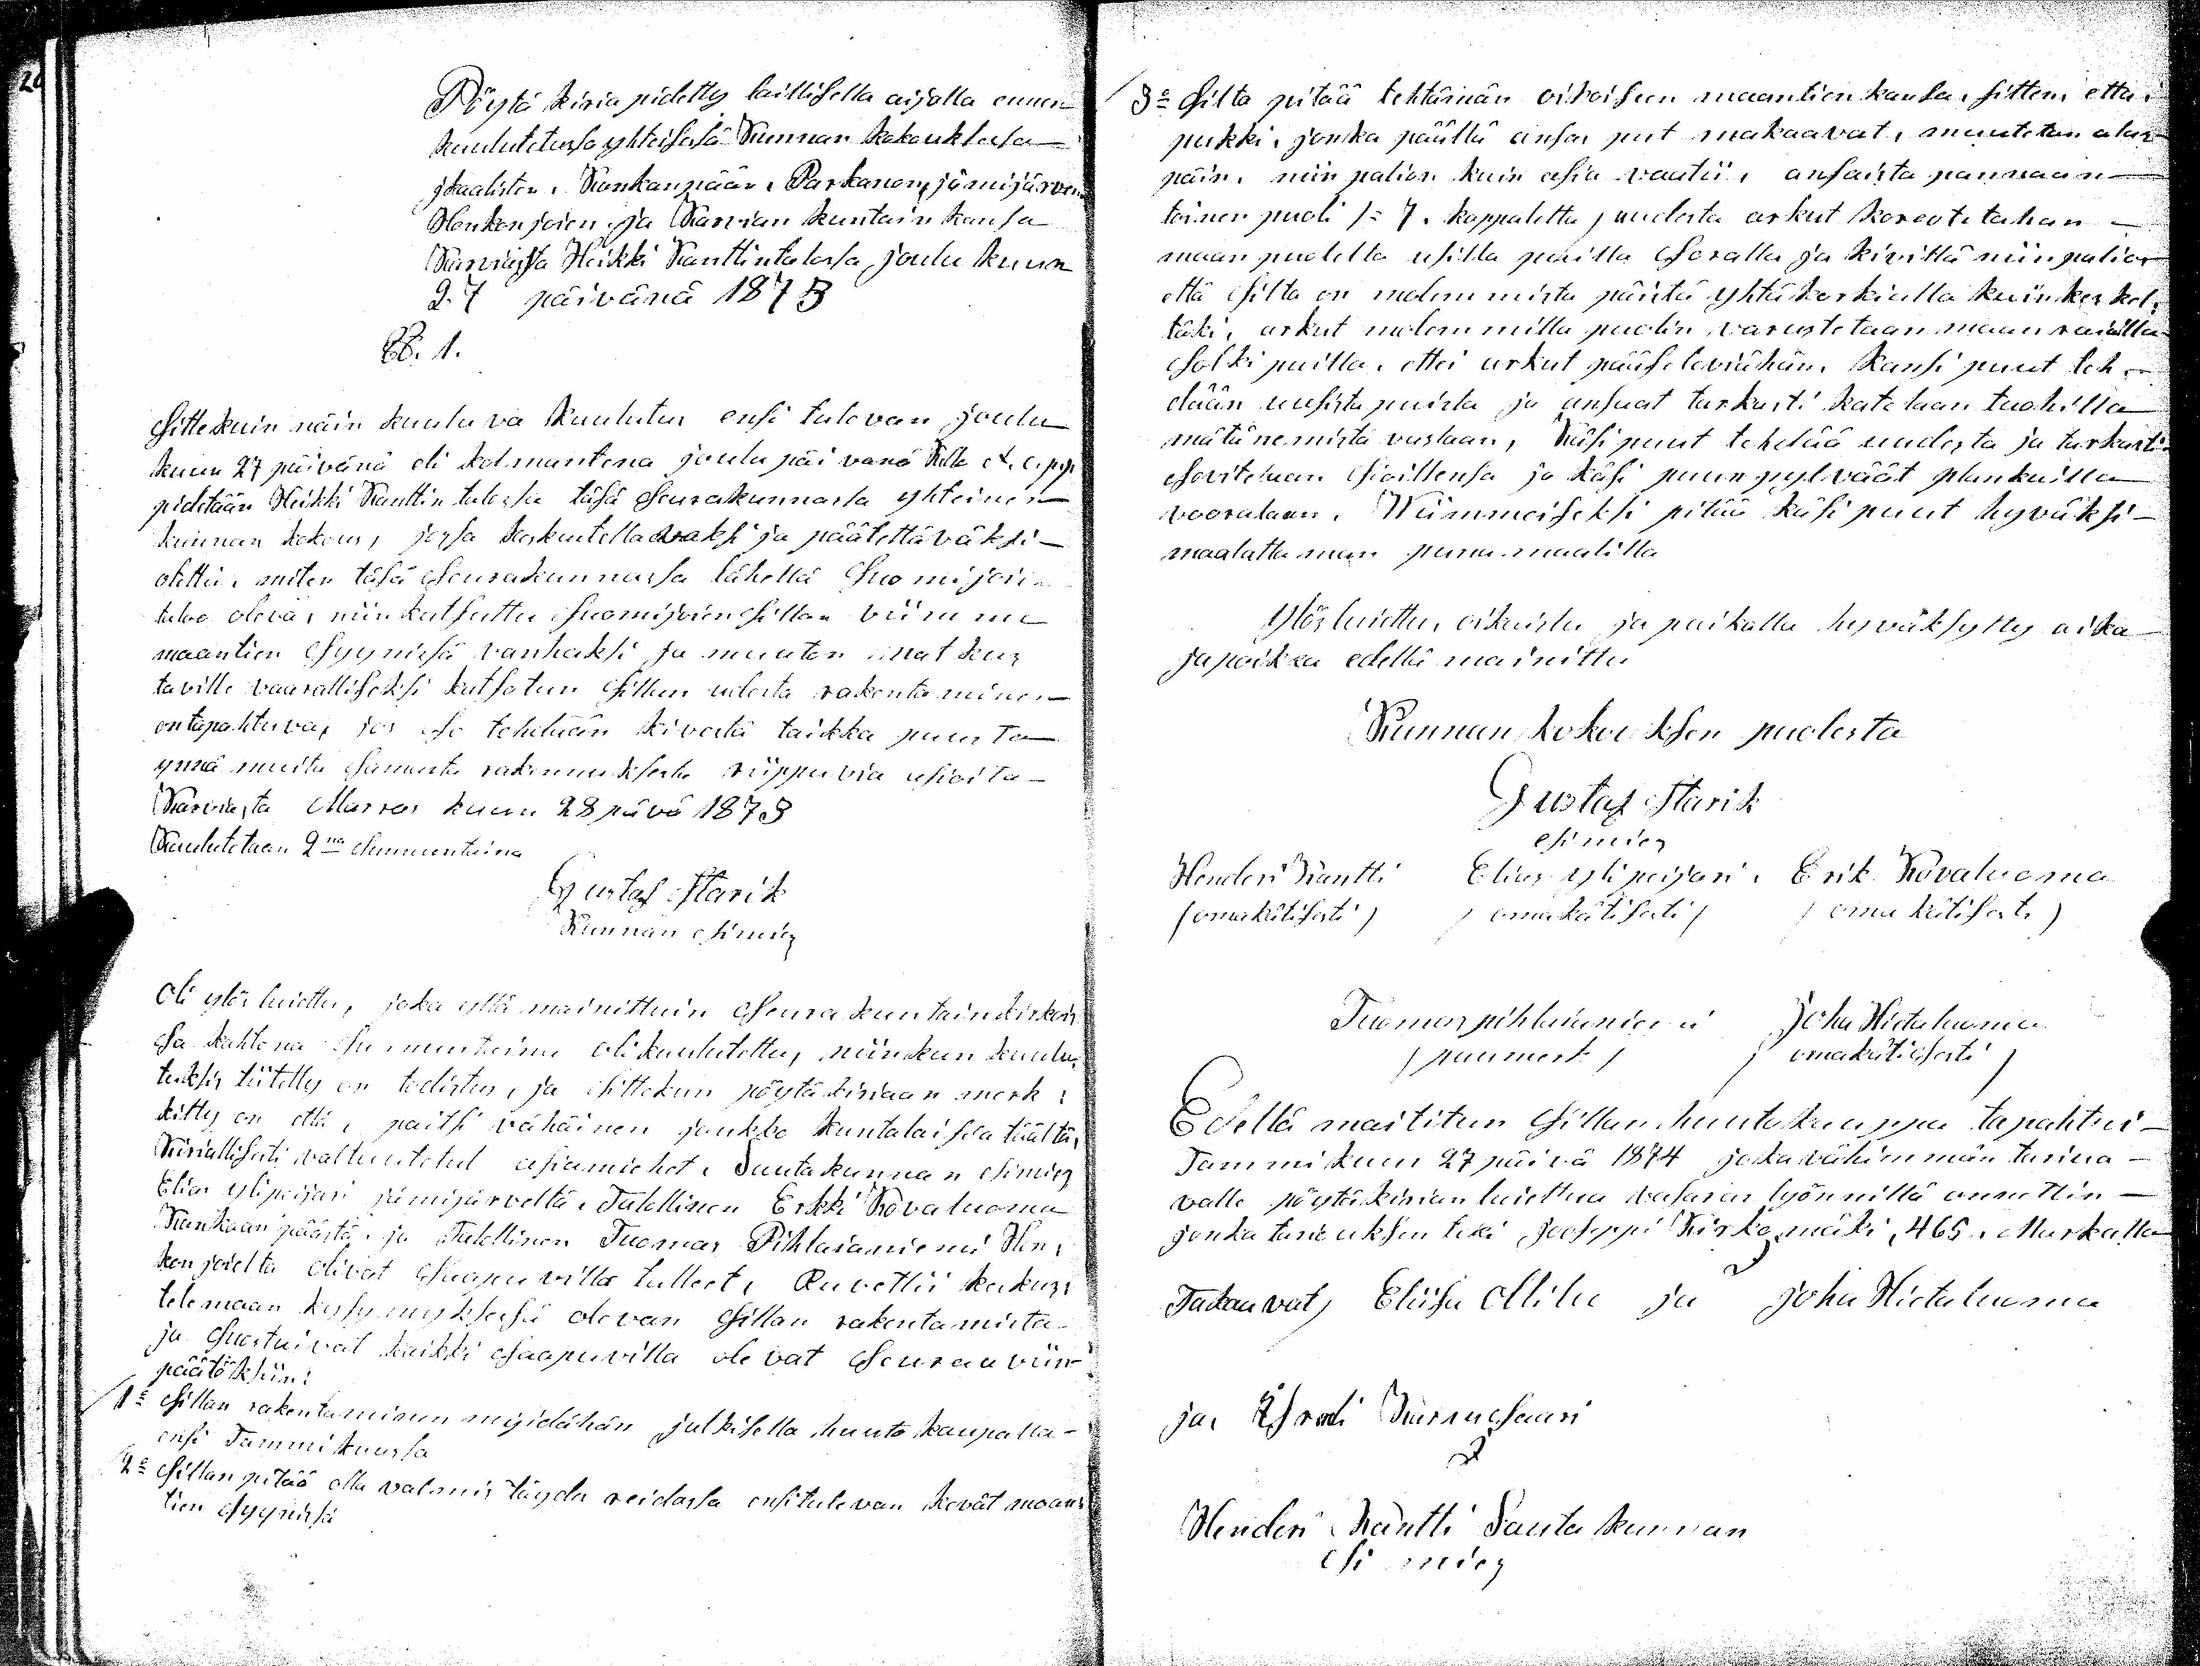 Pöytä kiria pidetty laillisella aijalla ennen
kuulutetussa yhteisesä Kunnan kokouksesa
jkaalisten, Kankanpään, Parkanon, jämijärven
Honkonjoien, ja Karvian kuntain kansa
Karviassa Heikki Kanttintalossa, joulu kuun
27 päivänä 1873
§. 1.
Sittekuin näin kuuluva kuulutus ensi tulevan joulu
kuun 27 päivänä eli kolmantena joulu päivänä
pidetään Heikki Kanttin talossa täsä Seurakunnassa yhteinen
kunnan kokous, jossa keskustellavaksi ja päätettäväksi
otettu, miten täsä Seurakunnassa lähellä Suomijoien
taloo oleva, niin kutsuttu Suomijoien sillan viimme
maantien Syynissä vanhaksi ja muuton matkus
taville vaaralliseksi katsotun Sillan udesta rakentaminen
on tapahtuva, jos Se tehdään kivestä taikka puusta
ynnä muita Samasta rakennuksesta riippuvia asioita
Karviasta Marras kuun 28 päivä 1873
Kuulutetaan 2na Sunnuntaina
Gustaf Starik
Kunnan esimies
Oli ylös luettu, joka yllä mainittuin Seurakuntain kirkois
sa kahtena Sunnuntaina oli kuulutettu, niinkun kuulu
tuksis liitetty on todistus, ja Sittekun pöytäkiriaan merk
kitty on että, paitsi vähäinen joukko kuntalaisia täältä,
Kiriallisesti valtuutetut asiamiehet, Lautakunnan esimies
Elias ylipeijari jämijärveltä, Talollinen Erkki Kovaluoma
Kankaanpäästä, ja Talollinen Tuomas Pihlaianiemi Hon
konjoielta olivat Saapuvilla tulleet, Ruvettii keskus
telemaan kysymyksesä olevan Sillan rakentamista
ja Suostuivat kaikki Saapuvilla olevat Seuraaviin
päätöksiin:
1o Sillan rakentaminen myidähän julkisella huuto kaupalla
ensi Tammikuussa
2o Sillan pitää olla valmis täyde reidassa ensitulevan kevät maan
tien Syynissä
3o Silta pitää tehtämän oikoiseen maantien kansa, sitten, että
pukki, jonka päällä ansas puut makaavat, muutetan alas
päin, niin palion kuin asia vaatii, ansaista pannaan
toinen puoli /= 7. kappaletta, uudesta arkut koreotetahan
maan puolella usilla puilla Soralla ja kivillä niin palion
että Silta on molemmista päistä yhtä korkialla kuin keskel
täki, arkut molemmilla puolin varustetaan maan rasialla
Solki puilla, ettei arkut pääse leviähän, kansi puut teh
dään uusista puista ja ansaat tarkasti katetaan tuohilla
mätänemistä vastaan, Käsi puut tehdää uudesta ja tarkasti
Sovitetaan Sioillensa ja käsi puun pylväät plankuilla
voorataan, Wiimmeiseksi pitää käsi puut hyväksi
maalattaman puna maalilla
Ylös luettu, oikaistu ja paikalla hyväksytty aika
ja paikka edellä mainittu
Kunnan kokouksen puolesta
Gustaf Starik
esimies
Henderi Kantti Elias ylipeijari, Erik Kovaluoma
(omakätisesti) (omakätisesti) (oma kätisesti)
Tuomas pihlaianiemi Joha Hietaluoma
(puumerk) (omakätisesti)
Edellä maititun Sillan huutokauppa tapahtui
Tammikuun 27 päivä 1874 joka vähimmän tariua
valle pöytäkirian luettua vasaran lyönnillä annettin
jonka tariouksen teki Jooseppi Kirkomäki, 465. Markalla
Takaavat, Eliisa Ollila ja Joha Hietaluoma
ja, Karinsaari
Henderi Kantti Lautakunnan
esimies